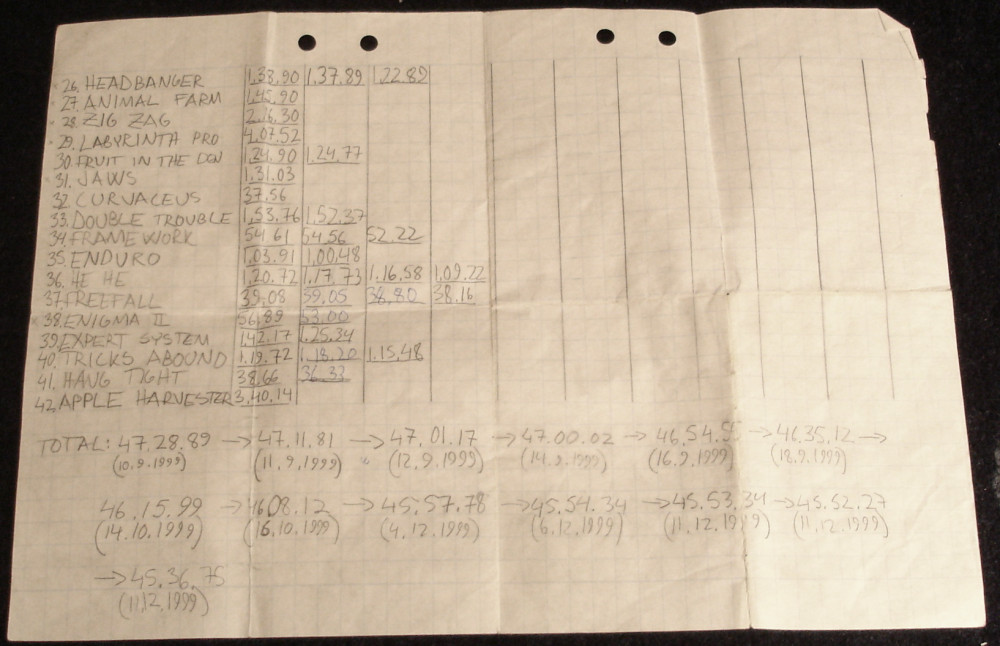 26. HEADBANGER 1,38,90 1,37,89 1,22,82
27. ANIMAL FARM 1,45,90
28. ZIG ZAG 2,16,30
29. LABYRINTH PRO 4,07,52
30. FRUIT IN THE DEN 1,24,90 1,24,77
31. JAWS 1,31,03
32. CURVACEUS 37,56
33. DOUBLE TROUBLE 1,53,76 1,52,37
34. FRAMEWORK 54,61 54,56 52,22
35. ENDURO 1,03,91 1,00,48
36. HE HE 1,20,72 1,17,73 1,16,58 1,09,22
37. FREEFALL 39,08 39,05 38,80 38,16
38. ENIGMA II 56,89 53,00
39. EXPERT SYSTEM 1,42,17 1,25,34
40. TRICKS ABOUND 1,19,72 1,18,20 1,15,48
41. HANG TIGHT 38,66 36,33
42. APPLE HARVESTER 3,40,14
TOTAL: 47.28.89 → 47.11.81 → 47.01.17 → 47.00.02 → 46.54.55 → 46.35.12 →
(10.9.1999) (11.9.1999) (12.9.1999) (14.9.1999) (16.9.1999) (18.9.1999)
46.15.99 → 46.08.12 → 45.57.78 → 45.54.34 → 45.53.34 → 45.52.27
(14.10.1999) (16.10.1999) (4.12.1999) (6.12.1999) (11.12.1999) (11.12.1999)
→ 45.36.75
(11.12.1999)